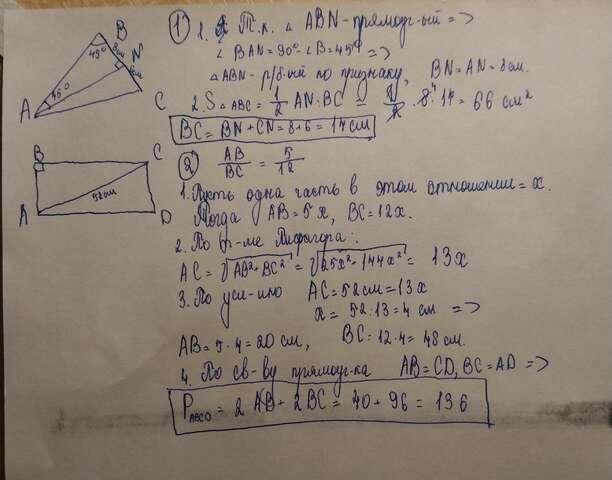 B
45°
8см
N
6см
45°
A
C
① 1. Т.к. △ ABN - прямоуг-ый =>
∠ BAN = 90° - ∠B = 45° =>
△ABN - р/б-ый по признаку, BN = AN = 8см.
2. S △ABC = 1/2 AN · BC = 1/2 · 8 · 14 = 66 см²
BC = BN + CN = 8 + 6 = 14 см
B
C
52 см
A
D
② AB/BC = 5/12
1. Пусть одна часть в этом отношении = x.
Тогда AB = 5x, BC = 12x.
2. По т-ме Пифагора:
AC = √AB² + BC² = √25x² + 144x² = 13x
3. По усл-ию AC = 52 см = 13x
x = 52:13 = 4 см =>
AB = 5 · 4 = 20 см, BC = 12 · 4 = 48 см.
4. По св-ву прямоуг-ка AB = CD, BC = AD =>
P ABCD = 2 AB + 2BC = 40 + 96 = 136